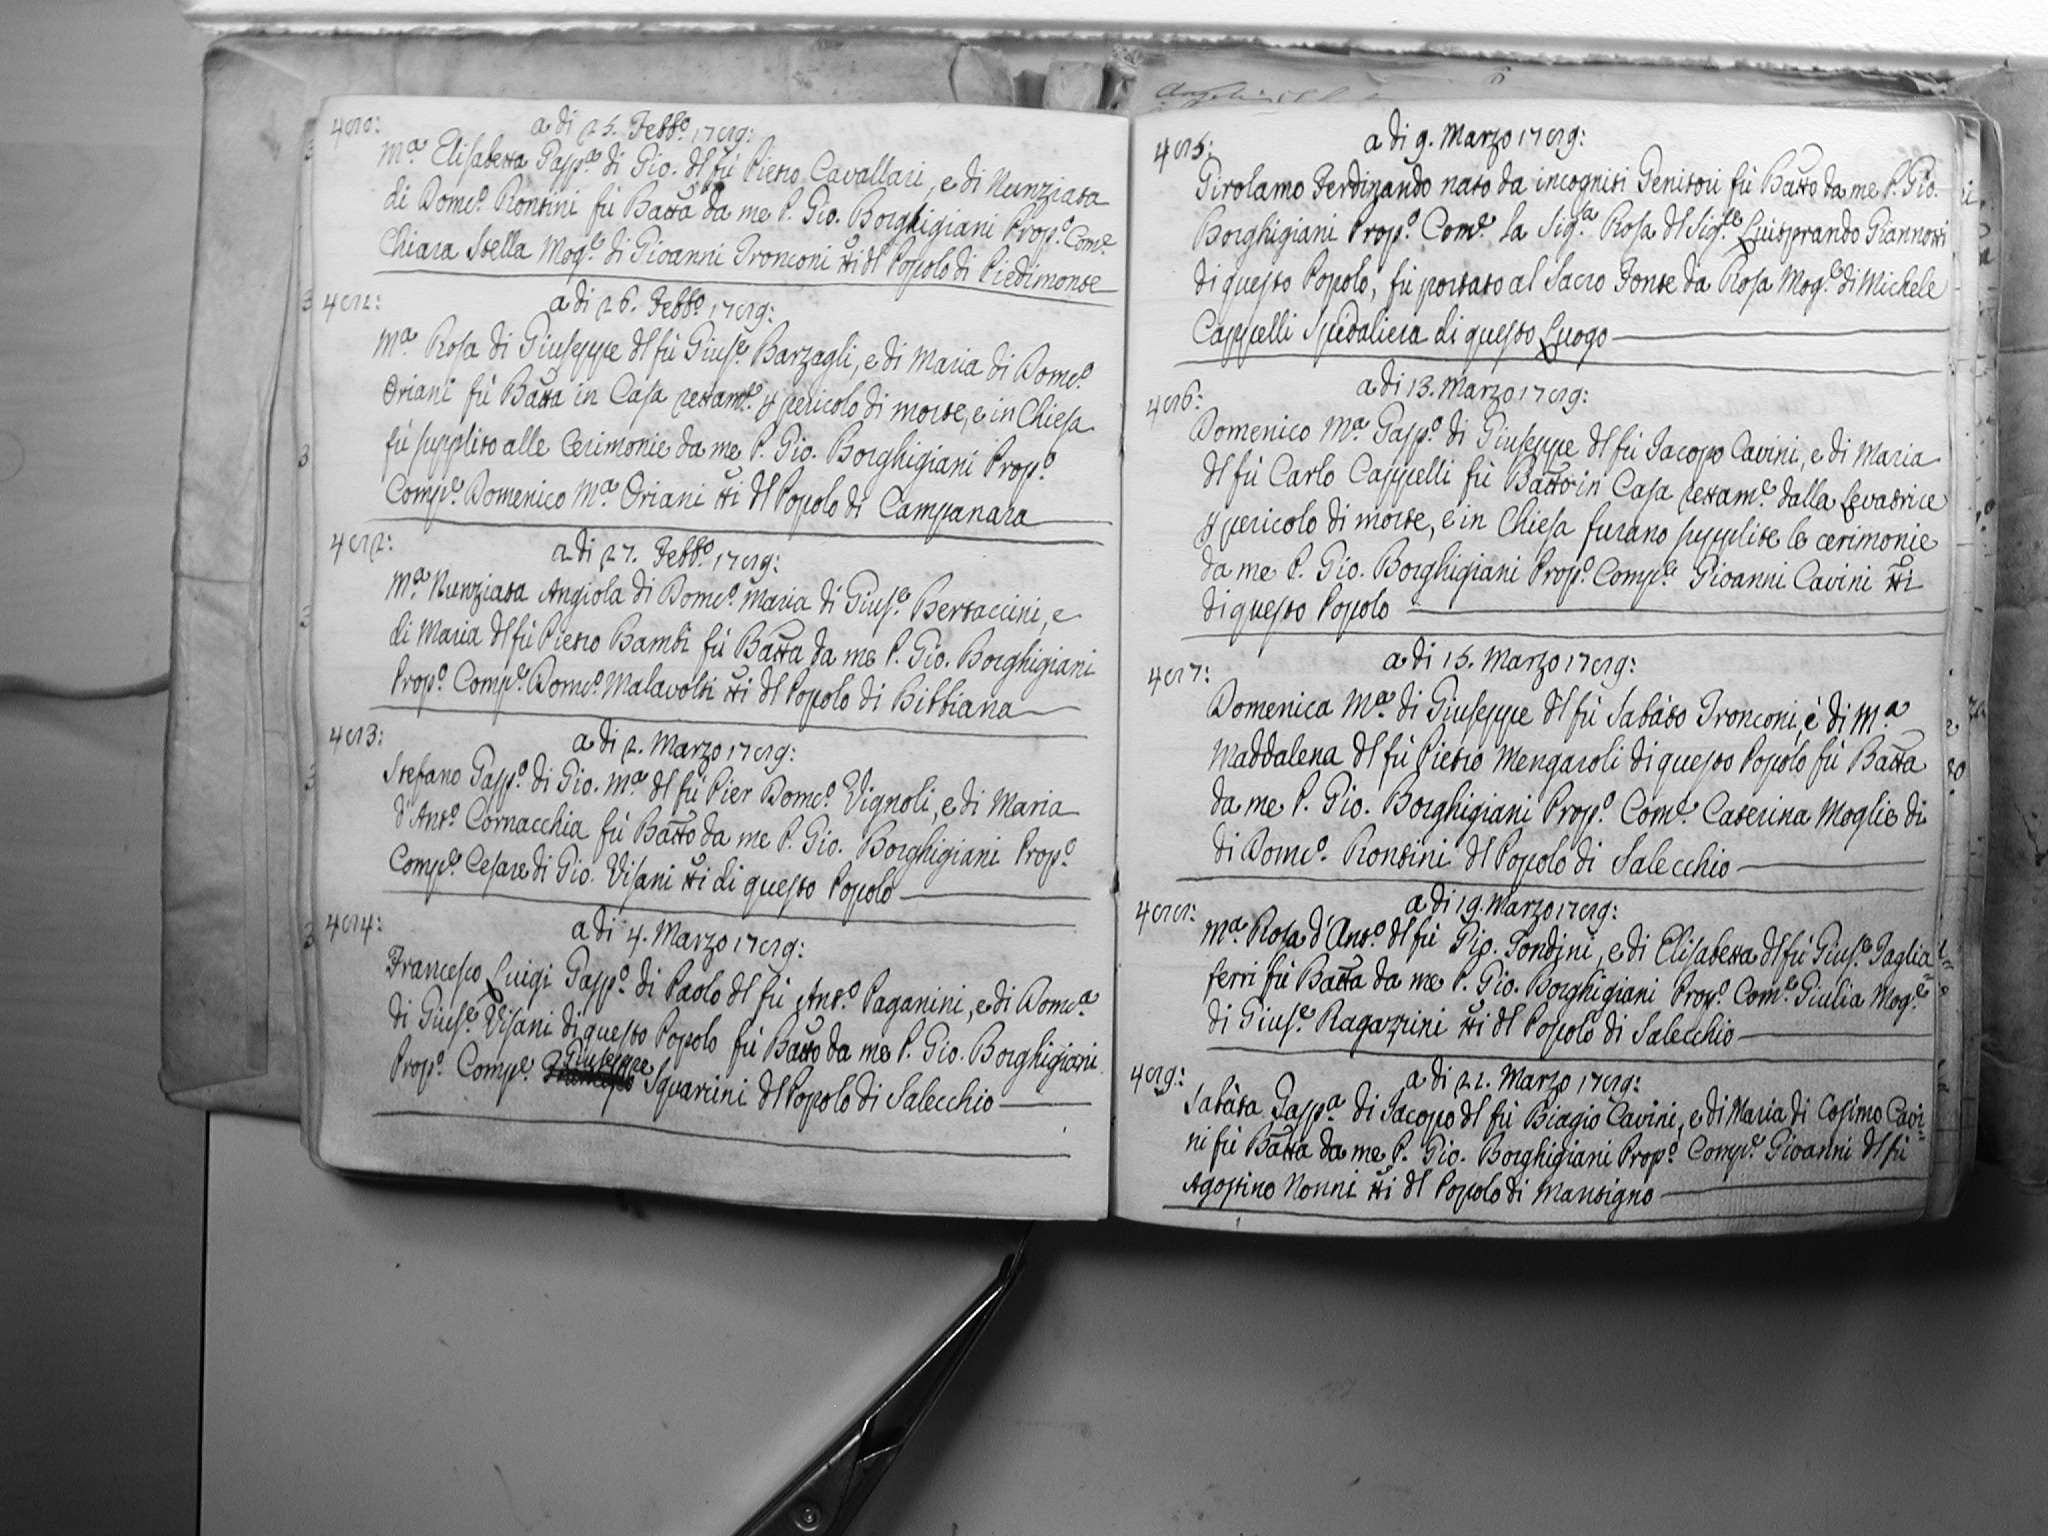 480: a di 25. Febb.º 1789:
M.ª Elisabetta Gasp.ª di Gio. del fù Pietro Cavallari, e di Nunziata
di Dom.co Rontini fù Batta da me P. Gio. Borghigiani Prop.º Com.e
Chiara Stella Mog.e di Gioanni Tronconi tti del Popolo di Piedimonte
481: a di 26. Febb.º 1789:
M.ª Rosa di Giuseppe del fù Gius.e Barzagli, e di Maria di Dom.co
Oriani fù Batta in Casa rettam.e p pericolo di morte, e in Chiesa
fù supplito alle Cerimonie da me P. Gio. Borghigiani Prop.º
Comp.e Domenico M.ª Oriani tti del Popolo di Campanara
482: a di 27. Febb.º 1789:
M.ª Nunziata Angiola di Dom.co Maria di Gius.e Bertaccini, e
di Maria del fù Pietro Bambi fù Batta da me P. Gio. Borghigiani
Prop.º Comp.e Dom.co Malavolti tti del Popolo di Bibbiana
483: a di 2. Marzo 1789:
Stefano Gasp.º di Gio. M.ª del fù Pier Dom.co Vignoli, e di Maria
d'Ant.º Cornacchia fù Batto da me P. Gio. Borghigiani Prop.º
Comp.e Cesare di Gio. Visani tti di questo Popolo
484: a di 4. Marzo 1789:
Francesco Luigi Gasp.º di Paolo del fù Ant.º Paganini, e di Dom.ca
di Gius.e Visani di questo Popolo fù Batto da me P. Gio. Borghigiani
Prop.º Comp.e Giuseppe Squarcini del Popolo di Salecchio
485: a di 9. Marzo 1789:
Girolamo Ferdinando nato da incogniti Genitori fù Batto da me P. Gio.
Borghigiani Prop.º Com.e la Sig.ª Rosa del Sig.e Luitprando Giannotti
di questo Popolo, fù portato al Sacro Fonte da Rosa Mog.e di Michele
Cappelli Spedaliera di questo Luogo
486: a di 13. Marzo 1789:
Domenico M.ª Gasp.º di Giuseppe del fù Jacopo Cavini, e di Maria
del fù Carlo Cappelli fù Batto in Casa rettam.e dalla Levatrice
p pericolo di morte, e in Chiesa furano supplite le cerimonie
da me P. Gio. Borghigiani Prop.º Comp.e Gioanni Cavini tti
di questo Popolo
487: a di 15. Marzo 1789:
Domenica M.ª di Giuseppe del fù Sabàto Tronconi, è di M.ª
Maddalena del fù Pietro Mengaroli di questo Popolo fù Batta
da me P. Gio. Borghigiani Prop.º Com.e Caterina Moglie di
di Dom.co Rontini del Popolo di Salecchio
488: a di 19. Marzo 1789:
M.ª Rosa d'Ant.º del fù Gio. Tondini, e di Elisabetta del fù Gius.e Taglia=
ferri fù Batta da me P. Gio. Borghigiani Prop.º Com.e Giulia Mog.e
di Gius.e Ragazzini tti del Popolo di Salecchio
489: a di 22. Marzo 1789:
Sabàta Gasp.ª di Jacopo del fù Biagio Cavini, e di Maria di Cosimo Cavi=
ni fù Batta da me P. Gio. Borghigiani Prop.º Comp.e Gioanni del fù
Agostino Nonni tti del Popolo di Mantigno